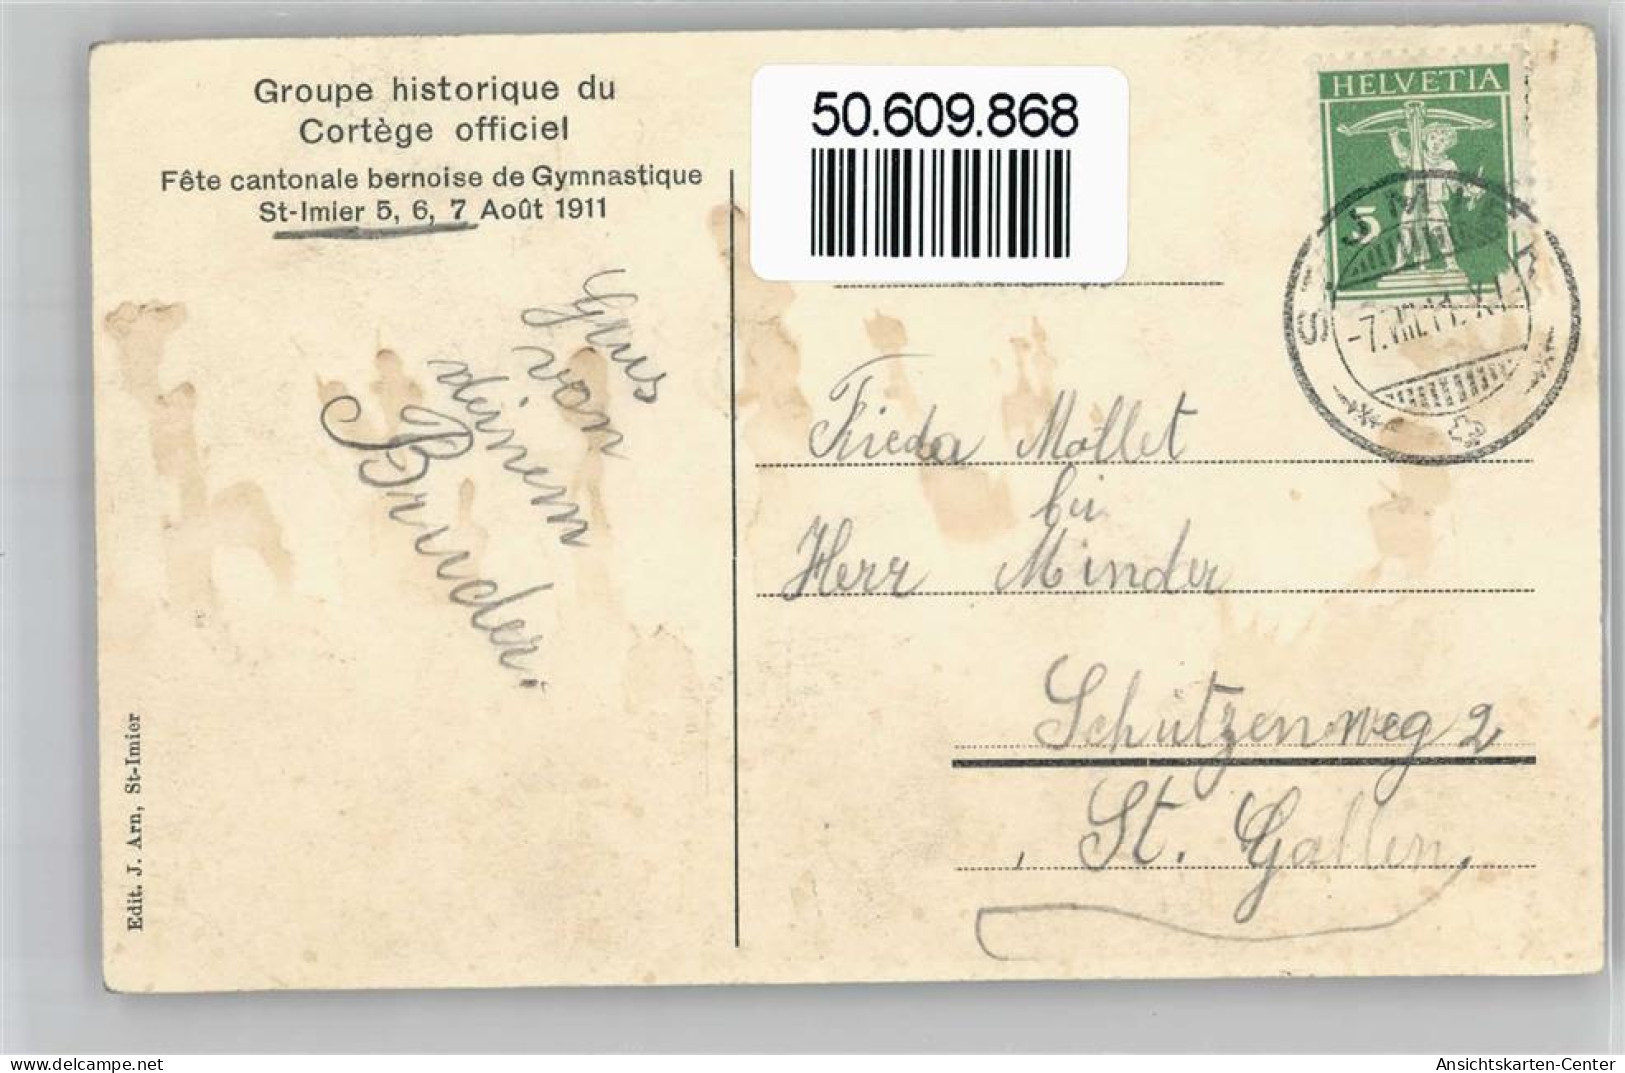 Groupe historique du
Cortège officiel
Fête cantonale bernoise de Gymnastique
St-Imier 5, 6, 7 Août 1911
Gruss
von
deinem
Bruder.
Edit. J. Arn, St-Imier
50.609.868
HELVETIA
5
ST. IMIER
-7.VIII.11. XI
Frieda Mollet
bei
Herr Minder
Schützenweg 2
St. Gallen.
delcampe.net
Ansichtskarten-Center